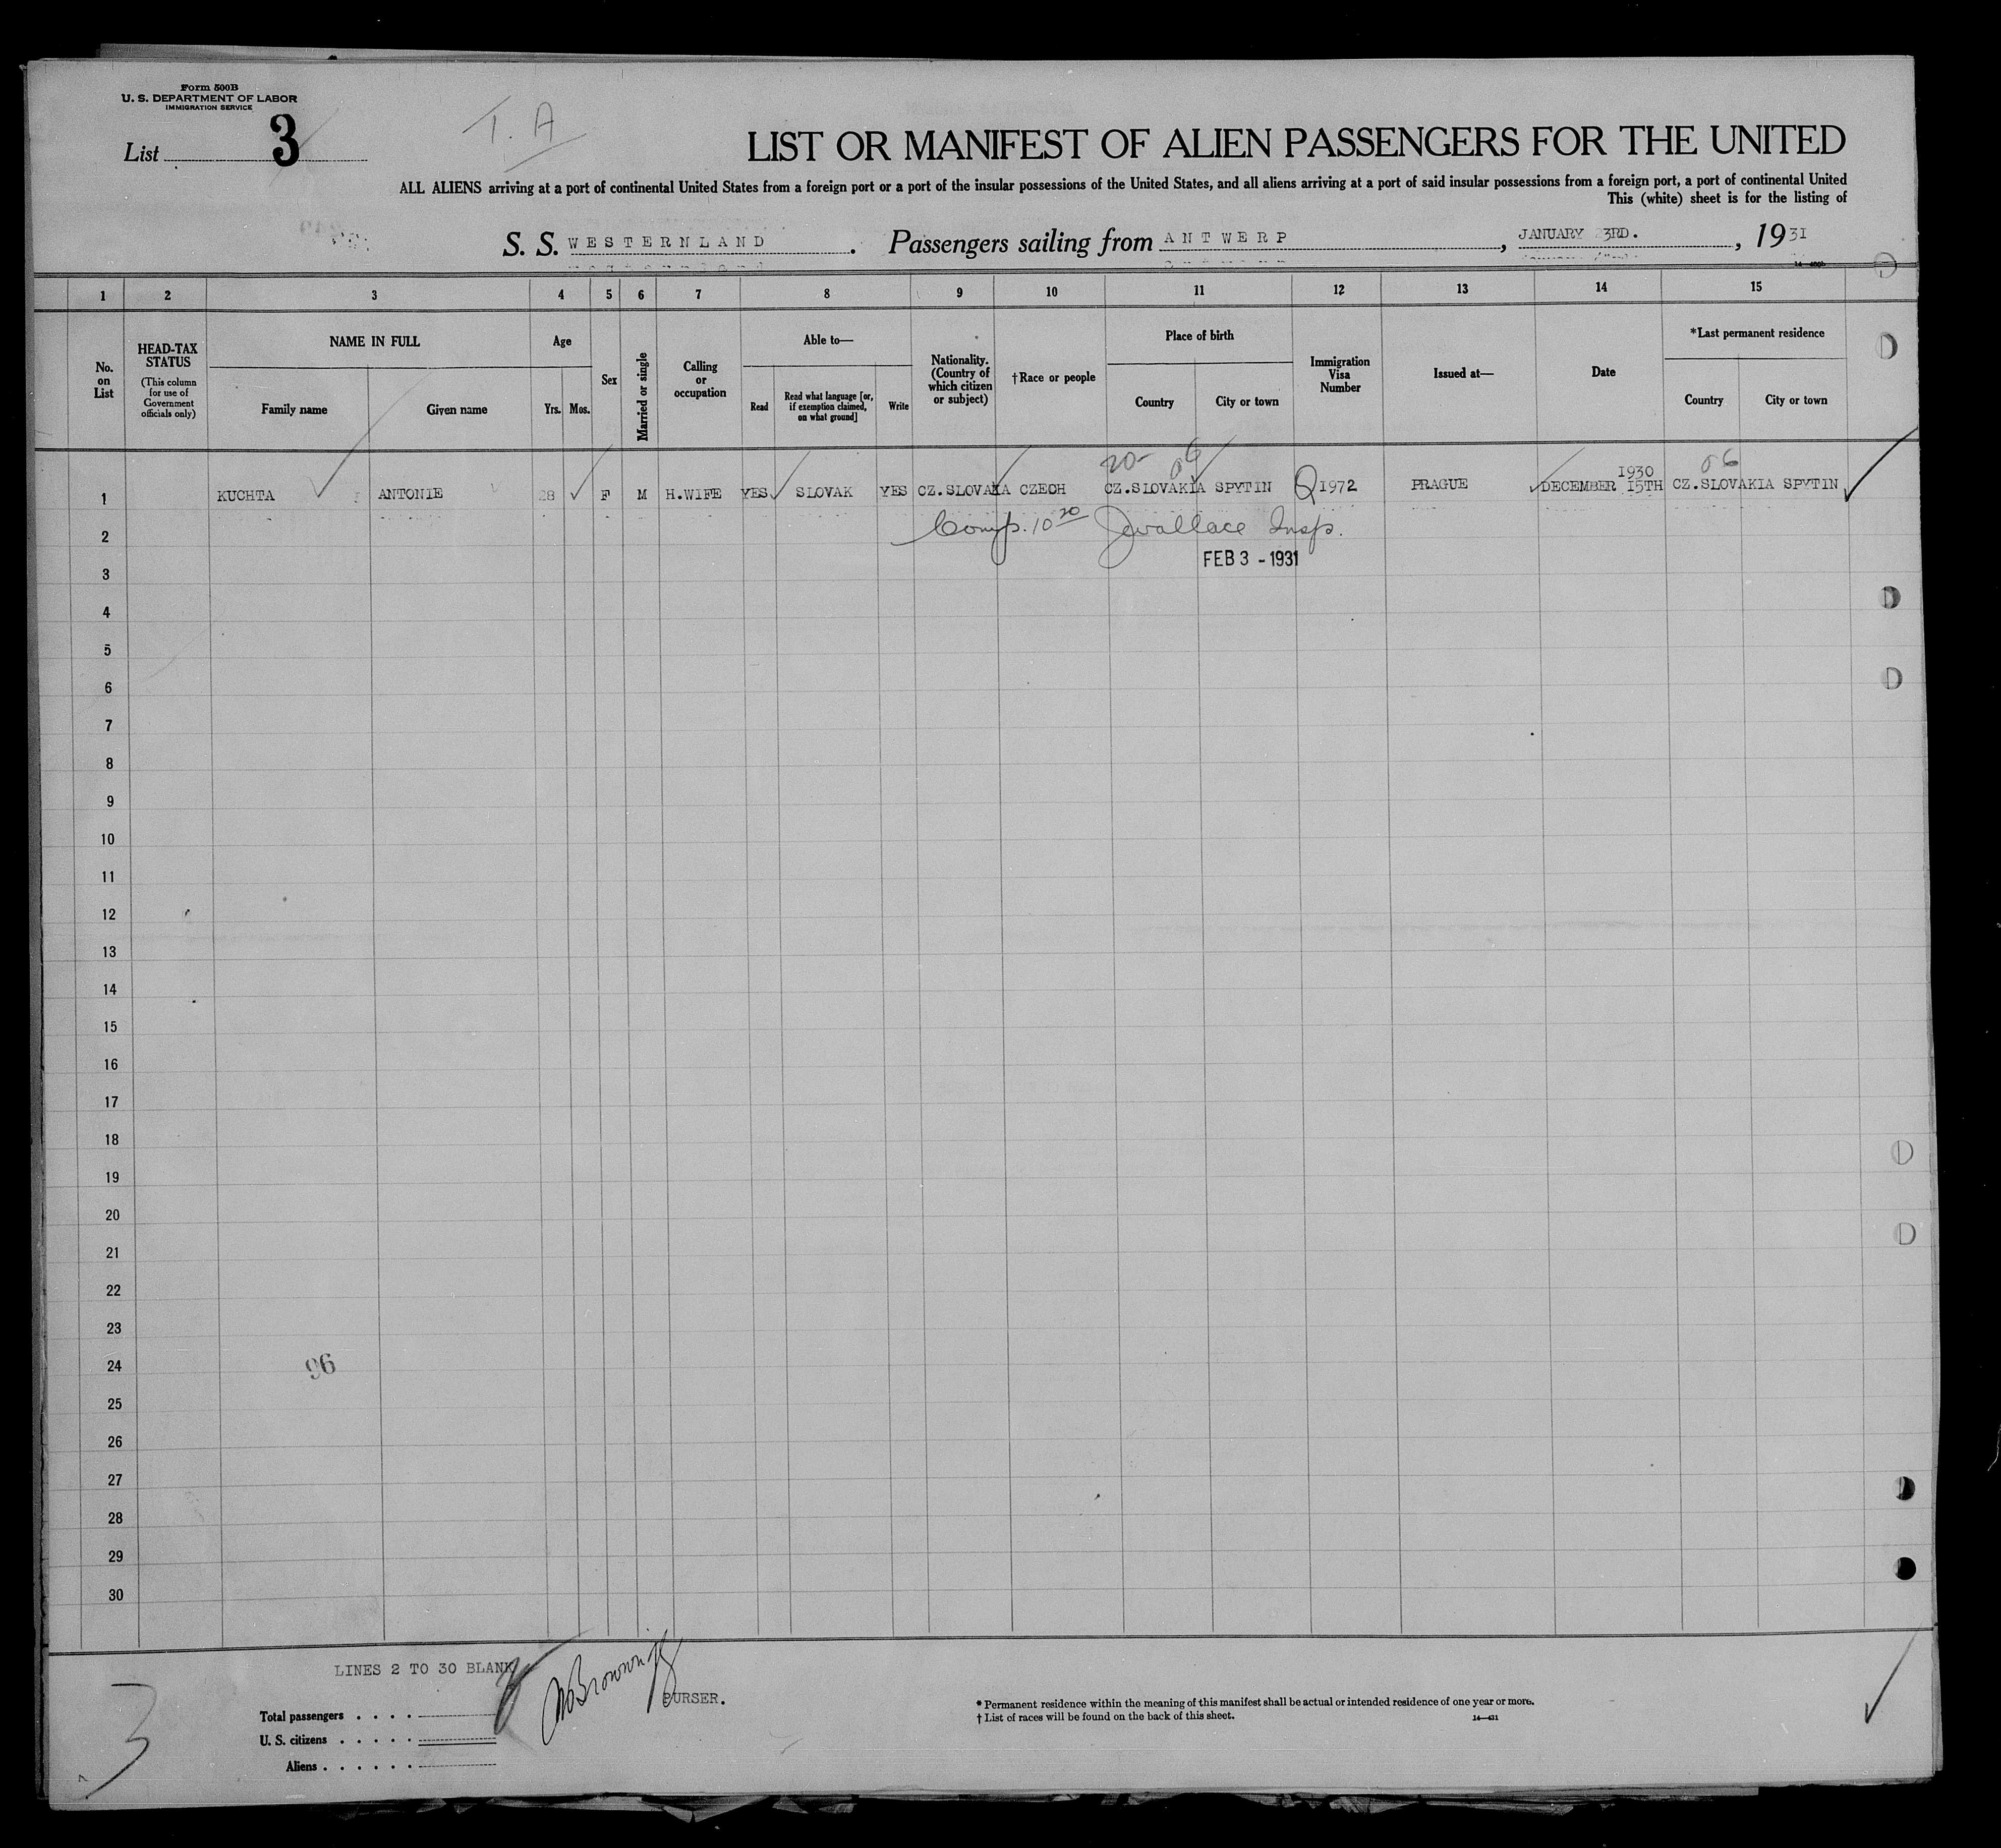 Form 500B
U. S. DEPARTMENT OF LABOR
IMMIGRATION SERVICE
List 3
T. A
LIST OR MANIFEST OF ALIEN PASSENGERS FOR THE UNITED
ALL ALIENS arriving at a port of continental United States from a foreign port or a port of the insular possessions of the United States, and all aliens arriving at a port of said insular possessions from a foreign port, a port of continental United
This (white) sheet is for the listing of
S. S. WESTERNLAND. Passengers sailing from ANTWERP, JANUARY 23RD., 1931
1 2 3 4 5 6 7 8 9 10 11 12 13 14 15
No. on List
HEAD-TAX STATUS
(This column for use of Government officials only)
NAME IN FULL
Family name
Given name
Age
Yrs. Mos.
Sex
Married or single
Calling or occupation
Able to—
Read
Read what language [or, if exemption claimed, on what ground]
Write
Nationality. (Country of which citizen or subject)
†Race or people
Place of birth
Country
City or town
Immigration Visa Number
Issued at—
Date
*Last permanent residence
Country
City or town
20- 06
1930
06
1 KUCHTA ANTONIE 28 F M H.WIFE YES SLOVAK YES CZ.SLOVAKIA CZECH CZ.SLOVAKIA SPYTIN Q 1972 PRAGUE DECEMBER 15TH CZ.SLOVAKIA SPYTIN
2 Comp. 10 20 Jwallace Insp.
3 FEB 3 - 1931
4
5
6
7
8
9
10
11
12
13
14
15
16
17
18
19
20
21
22
23
24 96
25
26
27
28
29
30
LINES 2 TO 30 BLANK
PURSER.
Total passengers . . . .
U. S. citizens . . . . .
Aliens . . . . . .
3
* Permanent residence within the meaning of this manifest shall be actual or intended residence of one year or more.
† List of races will be found on the back of this sheet.
14—431